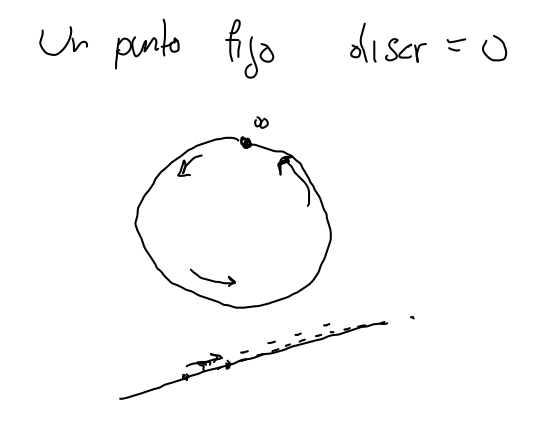 Un punto fijo discr = 0
∞